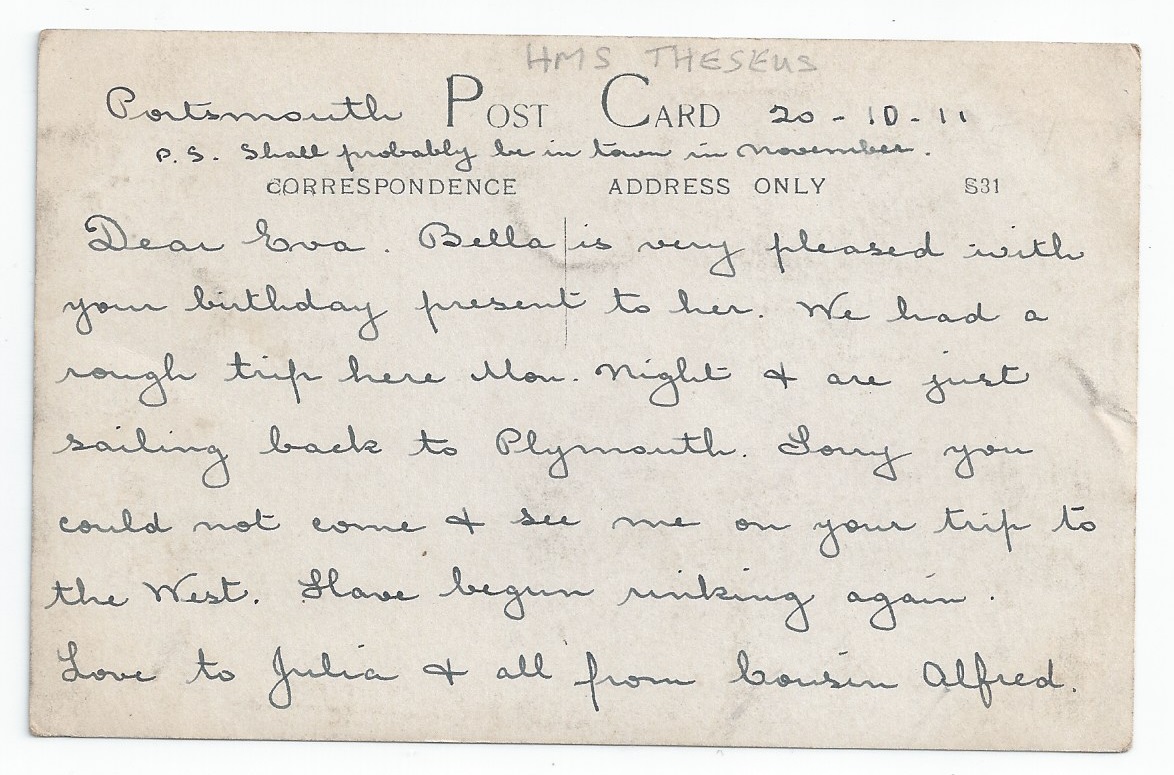 HMS THESEUS
Portsmouth POST CARD 20-10-11
P.S. Shall probably be in town in November.
CORRESPONDENCE ADDRESS ONLY S31
Dear Eva. Bella is very pleased with
your birthday present to her. We had a
rough trip here Mon. Night & are just
sailing back to Plymouth. Sorry you
could not come & see me on your trip to
the West. Have begun rinking again.
Love to Julia & all from Cousin Alfred.